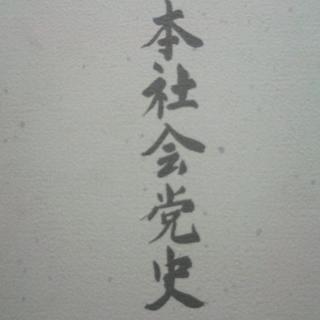 本社会党史